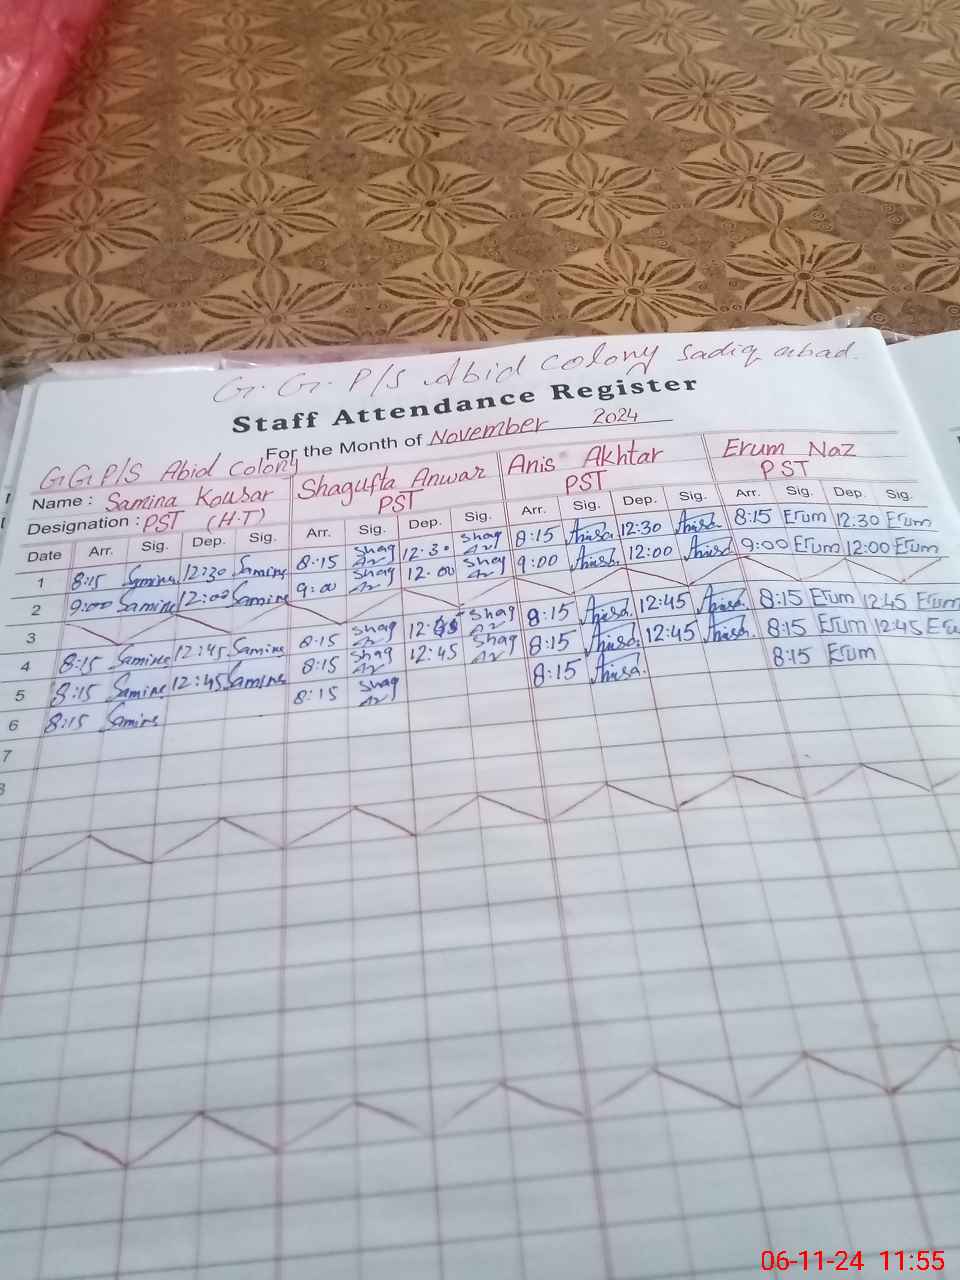 G.G.P/S Abid colony Sadiq abad.
Staff Attendance Register
For the Month of November 2024
G.G.P/S Abid Colony
Name : Samina Kousar Shagufta Anwar Anis Akhtar Erum Naz
Designation : PST (H.T) PST PST PST
Date Arr. Sig. Dep. Sig. Arr. Sig. Dep. Sig. Arr. Sig. Dep. Sig. Arr. Sig. Dep. Sig.
1 8:15 Samina 12:30 Samina 8:15 Shag 12:30 Shag 8:15 Anisa 12:30 Anisa 8:15 Erum 12:30 Erum
2 9:00 Samina 12:00 Samina 9:00 Shag 12:00 Shag 9:00 Anisa 12:00 Anisa 9:00 Erum 12:00 Erum
3
4 8:15 Samina 12:45 Samina 8:15 Shag 12:45 Shag 8:15 Anisa 12:45 Anisa 8:15 Erum 12:45 Erum
5 8:15 Samina 12:45 Samina 8:15 Shag 12:45 Shag 8:15 Anisa 12:45 Anisa 8:15 Erum 12:45 Eru
6 8:15 Samina 8:15 Shag 8:15 Anisa 8:15 Erum
7
8
06-11-24 11:55